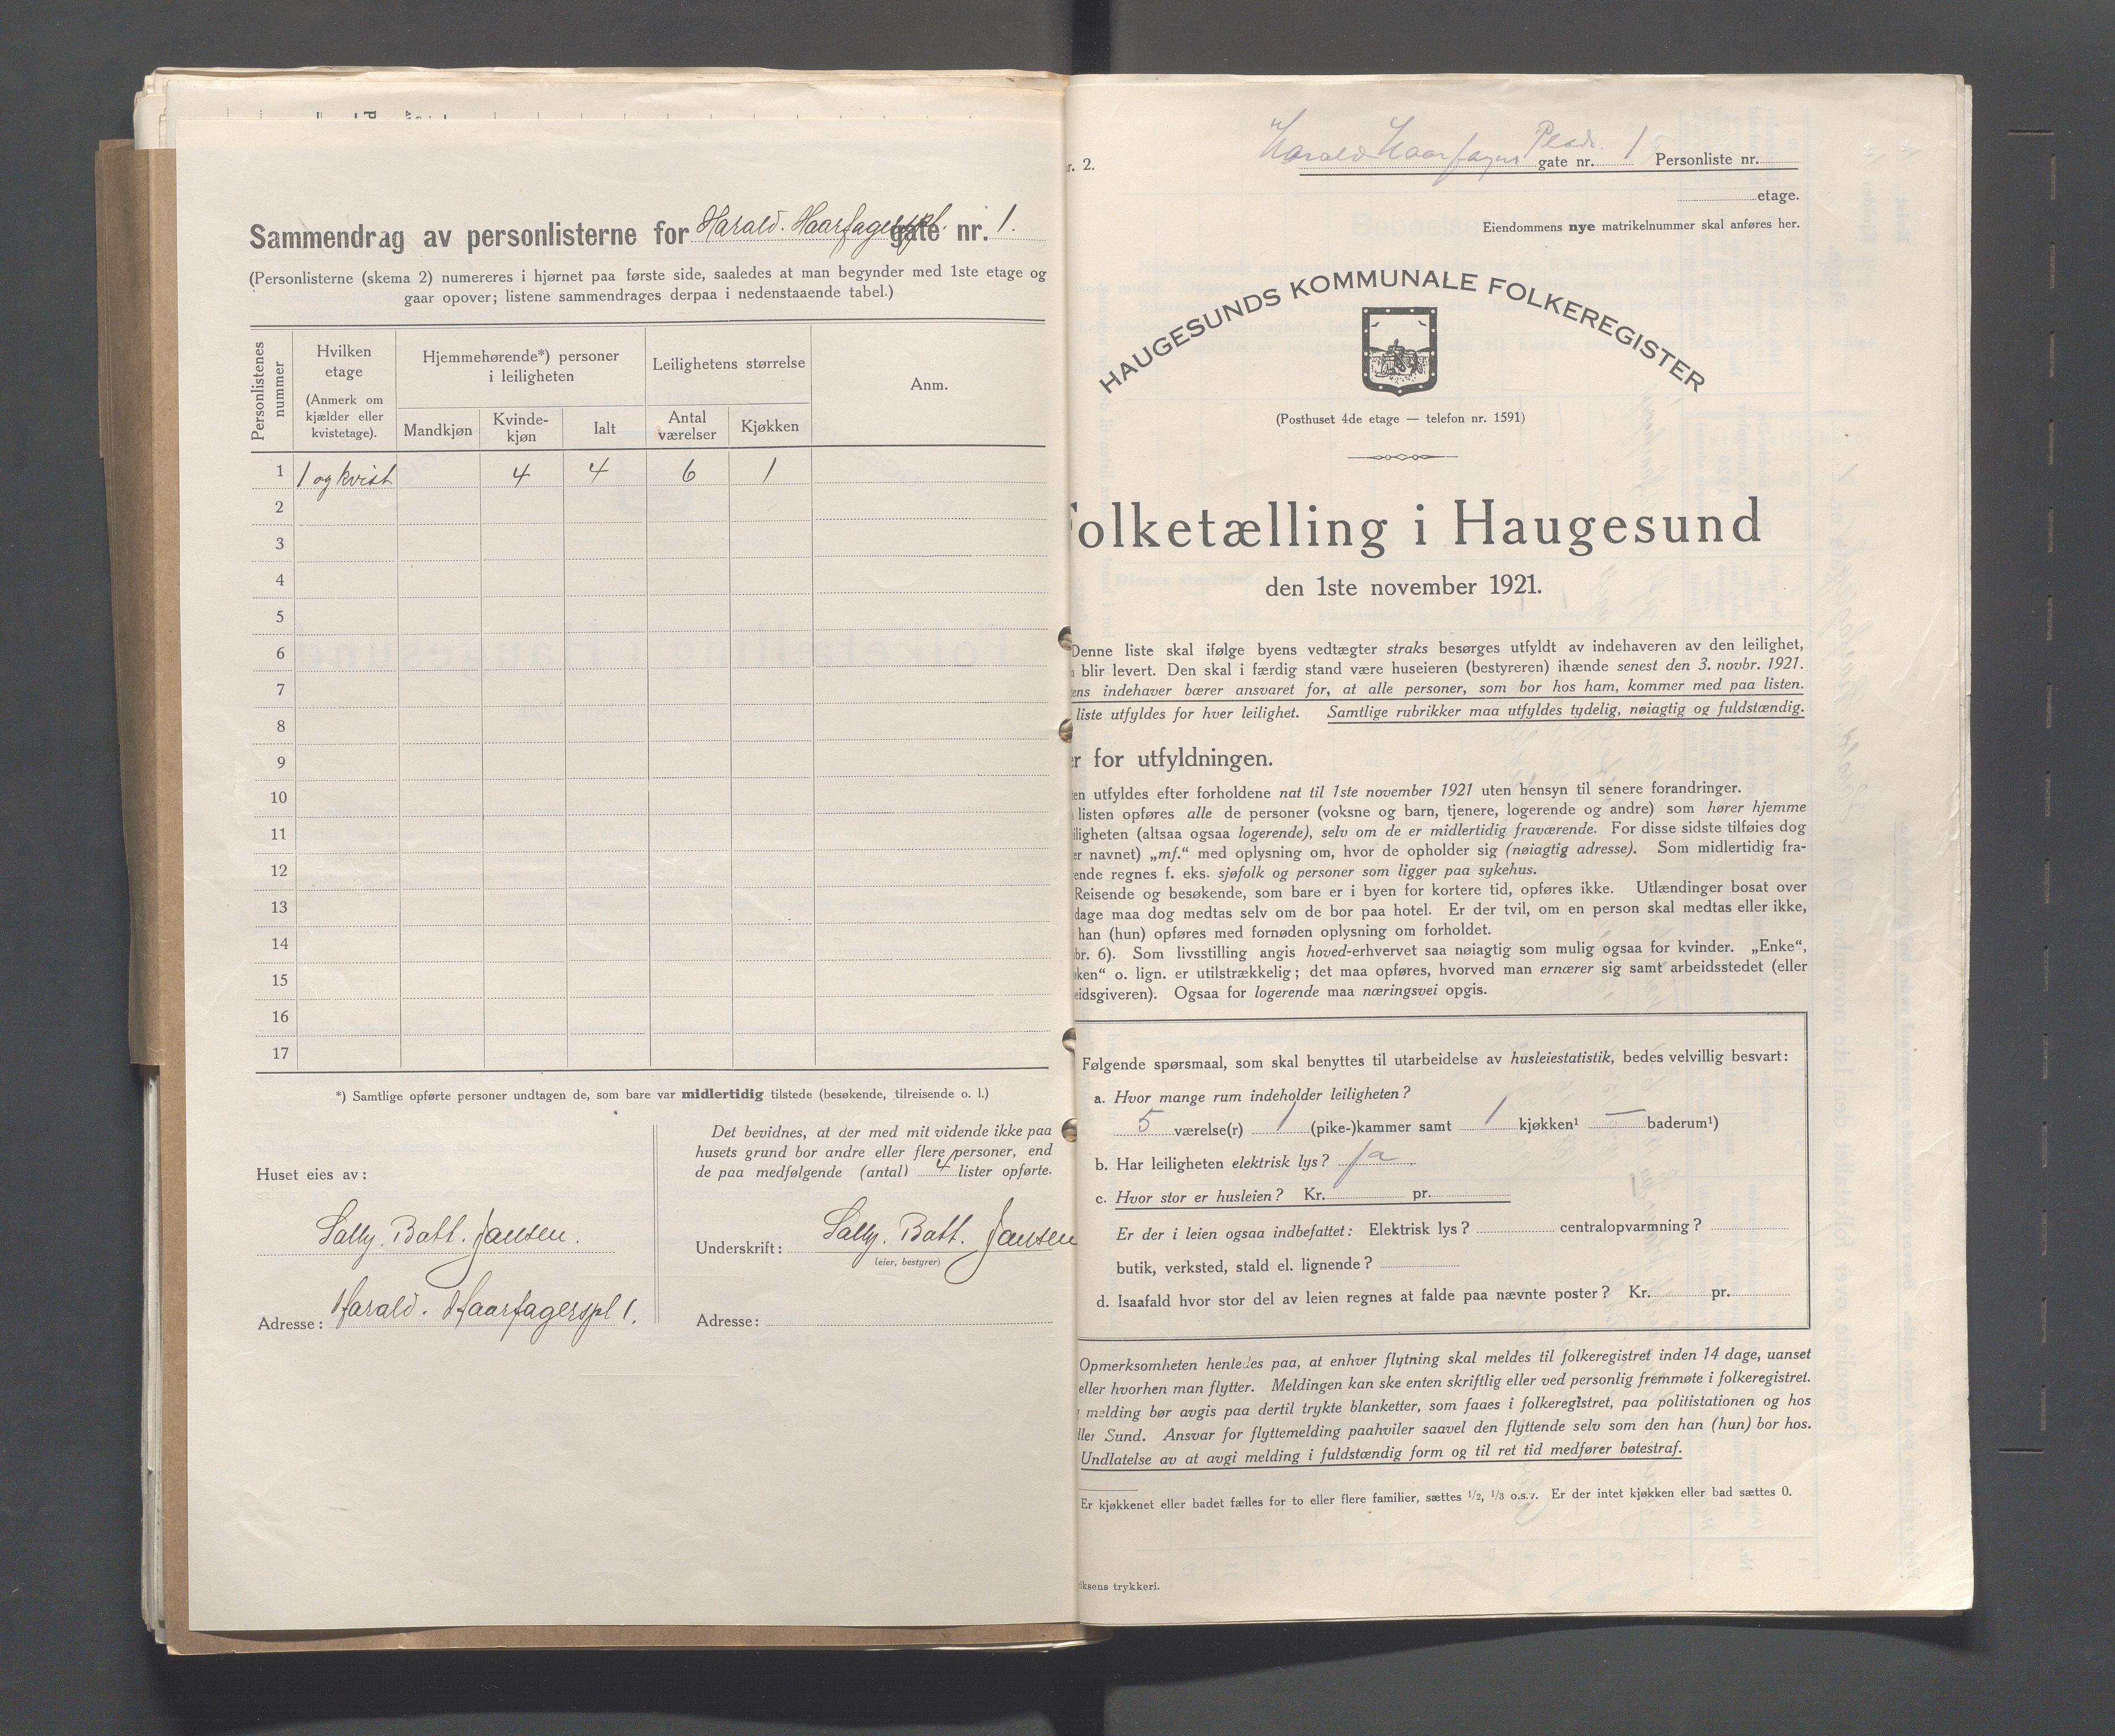 Sammendrag av personlisterne for Harald. Haarfagerspl. gate nr. 1.
(Personlisterne (skema 2) numereres i hjørnet paa første side, saaledes at man begynder med 1ste etage og
gaar opover; listene sammendrages derpaa i nedenstaaende tabel.)
Personlistenes nummer
Hvilken etage
(Anmerk om kjælder eller kvistetage).
Hjemmehørende*) personer i leiligheten
Mandkjøn
Kvinde-kjøn
Ialt
Leilighetens størrelse
Antal værelser
Kjøkken
Anm.
1 1 og kvist 4 4 6 1
2
3
4
5
6
7
8
9
10
11
12
13
14
15
16
17
*) Samtlige opførte personer undtagen de, som bare var midlertidig tilstede (besøkende, tilreisende o. l.)
Huset eies av:
Sally. Batt. Jansen.
Adresse: Harald. Haarfagerspl 1.
Det bevidnes, at der med mit vidende ikke paa
husets grund bor andre eller flere personer, end
de paa medfølgende (antal) 4 lister opførte.
Underskrift: Sally. Batt. Jansen
(eier, bestyrer)
Adresse:
r. 2.
Harald Haarfagers Plads. gate nr. 1 Personliste nr.
etage.
Eiendommens nye matrikelnummer skal anføres her.
HAUGESUNDS KOMMUNALE FOLKEREGISTER
(Posthuset 4de etage — telefon nr. 1591)
Folketælling i Haugesund
den 1ste november 1921.
Denne liste skal ifølge byens vedtægter straks besørges utfyldt av indehaveren av den leilighet,
blir levert. Den skal i færdig stand være huseieren (bestyreren) ihænde senest den 3. novbr. 1921.
ens indehaver bærer ansvaret for, at alle personer, som bor hos ham, kommer med paa listen.
liste utfyldes for hver leilighet. Samtlige rubrikker maa utfyldes tydelig, nøiagtig og fuldstændig.
er for utfyldningen.
en utfyldes efter forholdene nat til 1ste november 1921 uten hensyn til senere forandringer.
listen opføres alle de personer (voksne og barn, tjenere, logerende og andre) som hører hjemme
iligheten (altsaa ogsaa logerende), selv om de er midlertidig fraværende. For disse sidste tilføies dog
er navnet) „mf.“ med oplysning om, hvor de opholder sig (nøiagtig adresse). Som midlertidig fra-
ende regnes f. eks. sjøfolk og personer som ligger paa sykehus.
Reisende og besøkende, som bare er i byen for kortere tid, opføres ikke. Utlændinger bosat over
dage maa dog medtas selv om de bor paa hotel. Er der tvil, om en person skal medtas eller ikke,
han (hun) opføres med fornøden oplysning om forholdet.
br. 6). Som livsstilling angis hoved-erhvervet saa nøiagtig som mulig ogsaa for kvinder. „Enke“,
ken“ o. lign. er utilstrækkelig; det maa opføres, hvorved man ernærer sig samt arbeidsstedet (eller
eidsgiveren). Ogsaa for logerende maa næringsvei opgis.
Følgende spørsmaal, som skal benyttes til utarbeidelse av husleiestatistik, bedes velvillig besvart:
a. Hvor mange rum indeholder leiligheten?
5 værelse(r) 1 (pike-)kammer samt 1 kjøkken¹ — baderum¹)
b. Har leiligheten elektrisk lys? ja
c. Hvor stor er husleien? Kr. pr.
Er der i leien ogsaa indbefattet: Elektrisk lys? centralopvarmning?
butik, verksted, stald el. lignende?
d. Isaafald hvor stor del av leien regnes at falde paa nævnte poster? Kr. pr.
Opmerksomheten henledes paa, at enhver flytning skal meldes til folkeregistret inden 14 dage, uanset
eller hvorhen man flytter. Meldingen kan ske enten skriftlig eller ved personlig fremmøte i folkeregistret.
melding bør avgis paa dertil trykte blanketter, som faaes i folkeregistret, paa politistationen og hos
ller Sund. Ansvar for flyttemelding paahviler saavel den flyttende selv som den han (hun) bor hos.
Undlatelse av at avgi melding i fuldstændig form og til ret tid medfører bøtestraf.
Er kjøkkenet eller badet fælles for to eller flere familier, sættes 1/2, 1/3 o.s.v. Er der intet kjøkken eller bad sættes 0.
iksens trykkeri.